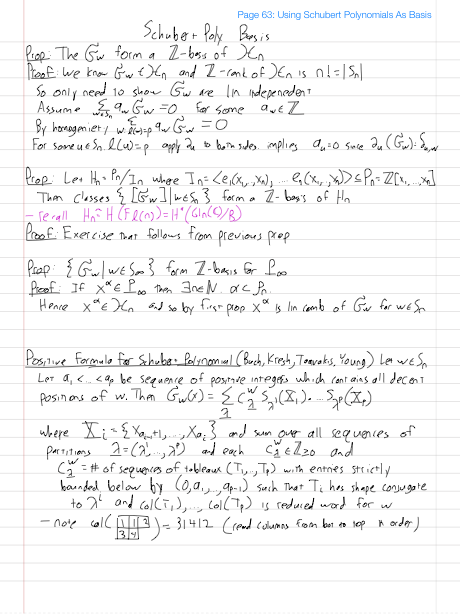 Page 63: Using Schubert Polynomials As Basis
Schubert Poly Basis
Prop: The 𝔖_w form a ℤ-basis of ℋ_n
Proof: We know 𝔖_w ∈ ℋ_n and ℤ-rank of ℋ_n is n! = |S_n|
So only need to show 𝔖_w are lin independent
Assume Σ_{w∈S_n} a_w 𝔖_w = 0 for some a_w ∈ ℤ
By homogeniety Σ_{w: l(w)=p} a_w 𝔖_w = 0
For some u∈S_n. l(u)=p apply ∂_u to both sides implies a_u=0 since ∂_u(𝔖_w)=δ_{u,w}
Prop: Let H_n = P_n/I_n where I_n = <e_1(x_1,..,x_n), .... e_n(x_1,..,x_n)> ≤ P_n = ℤ[x_1,...,x_n]
Then classes {[𝔖_w] | w∈S_n} form a ℤ-basis of H_n
- recall H_n ≅ H*(Fl(n)) = H*(Gln(ℂ)/B)
Proof: Exercise that follows from previous prop
Prop: {𝔖_w | w∈S_∞} form ℤ-basis for P_∞
Proof: If x^α ∈ P_∞ then ∃n∈ℕ. α ⊂ ρ_n
Hence x^α ∈ ℋ_n and so by first prop x^α is lin comb of 𝔖_w for w∈S_n
Positive Formula for Schubert Polynomial (Buch, Kresh, Tamvakis, Young) Let w∈S_n
Let a_1 < ... < a_p be sequence of positive integers which contains all decent
positions of w. Then 𝔖_w(x) = Σ_λ C^w_λ S_{λ^1}(X_1) ... S_{λ^p}(X_p)
where X_i = {x_{a_{i-1}+1}, ..., x_{a_i}} and sum over all sequences of
partitions λ = (λ^1, ..., λ^p) and each C^w_λ ∈ ℤ_{≥0} and
C^w_λ = # of sequences of tableaux (T_1,..,T_p) with entries strictly
bounded below by (0, a_1, ..., a_{p-1}) such that T_i has shape conjugate
to λ^i and col(T_1), ..., col(T_p) is reduced word for w
- note col( 1 1 2 3 4 ) = 31412 (read columns from bot to top in order)